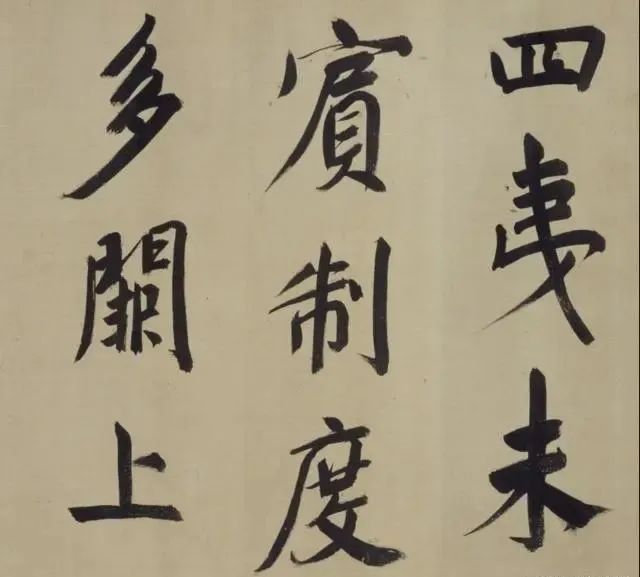 四夷未
賓制度
多闕上